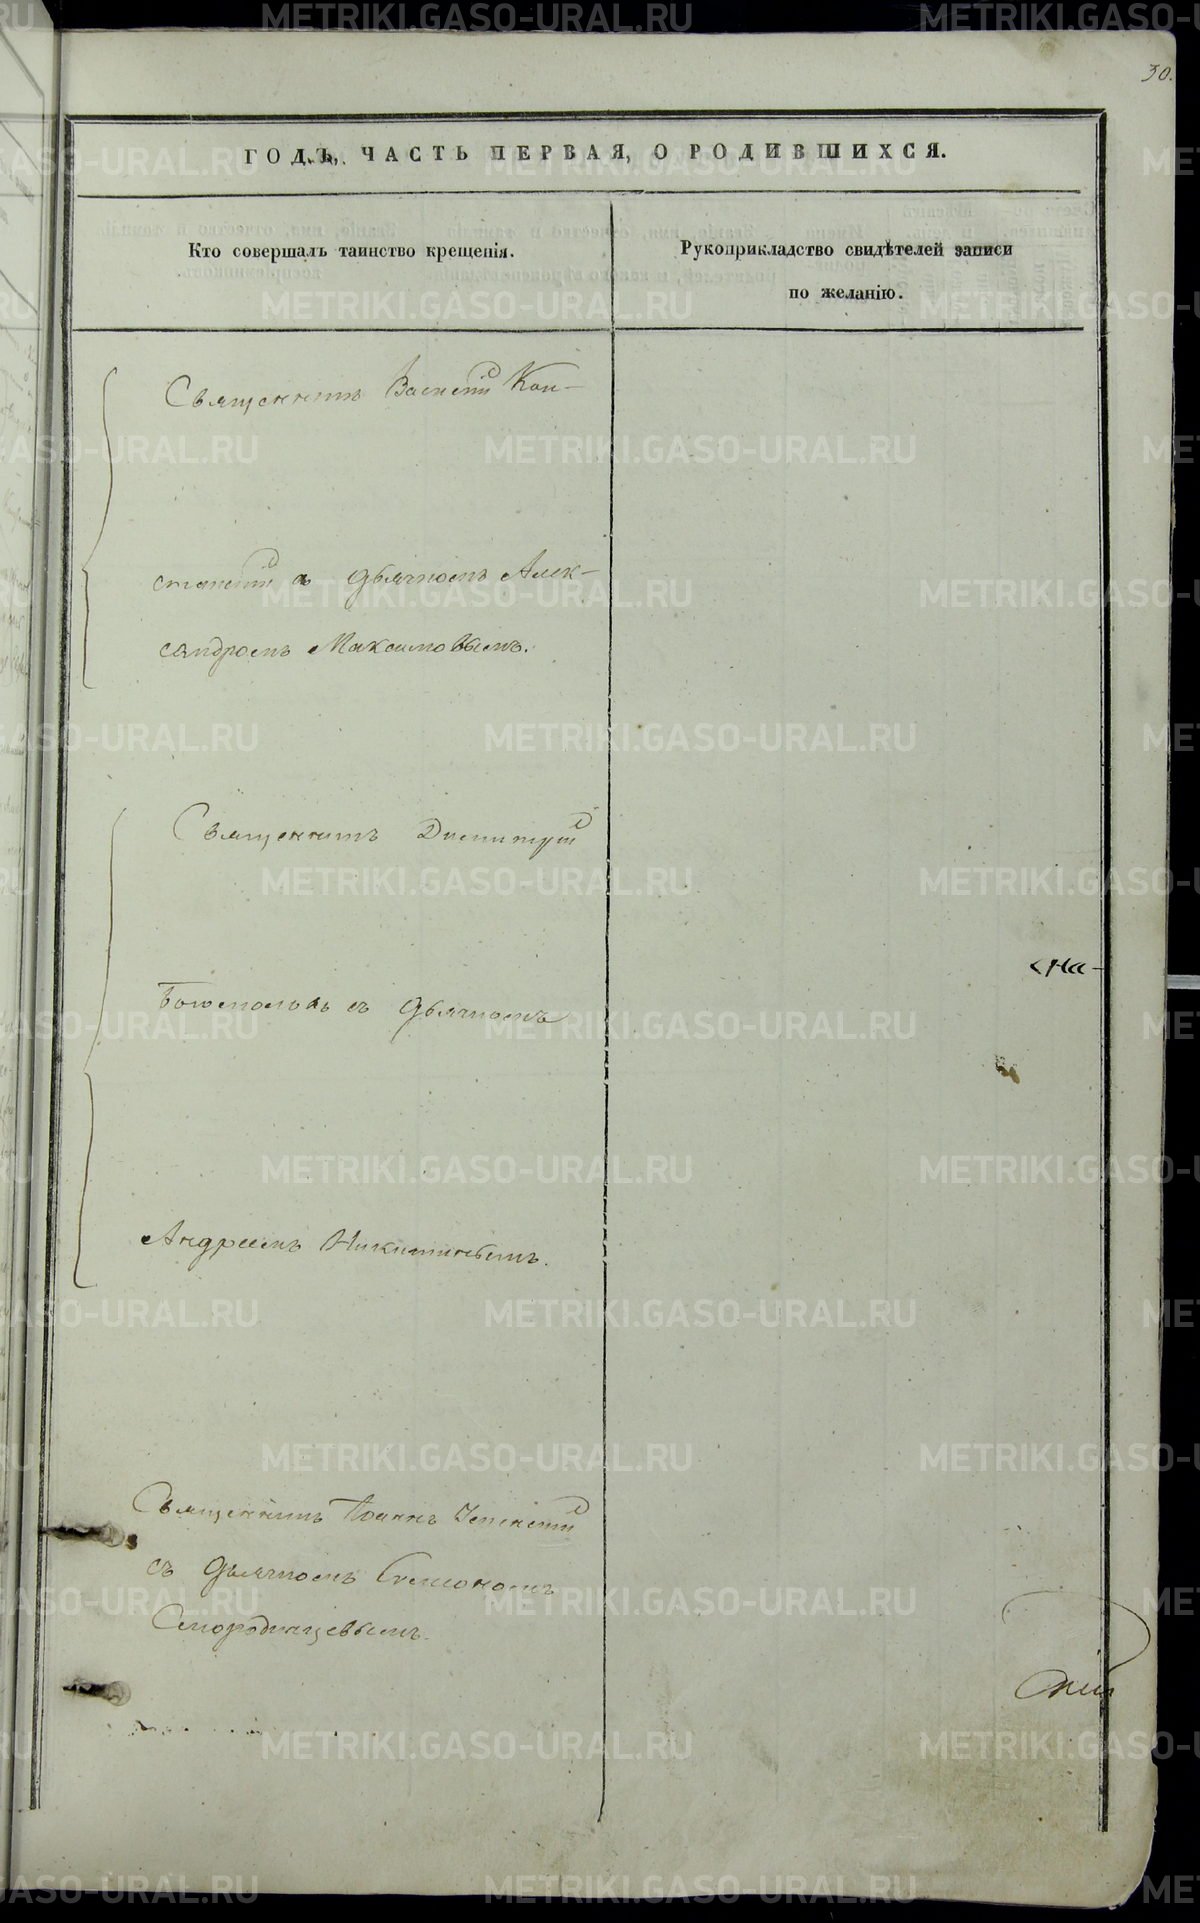 30.
ГОДЪ, ЧАСТЬ ПЕРВАЯ, О РОДИВШИХСЯ.
Кто совершалъ таинство крещенія.
Рукоприкладство свидѣтелей записи
по желанію.
Священникъ Василій Кон-
съ дьячкомъ Алек-
сандромъ Максимовымъ.
Священникъ Димитрій
Богомоловъ съ дьячкомъ
Андреемъ Никитинымъ.
Священникъ Іоаннъ
съ дьячкомъ Симеономъ
Смородинцевымъ.
сна-
METRIKI.GASO-URAL.RU